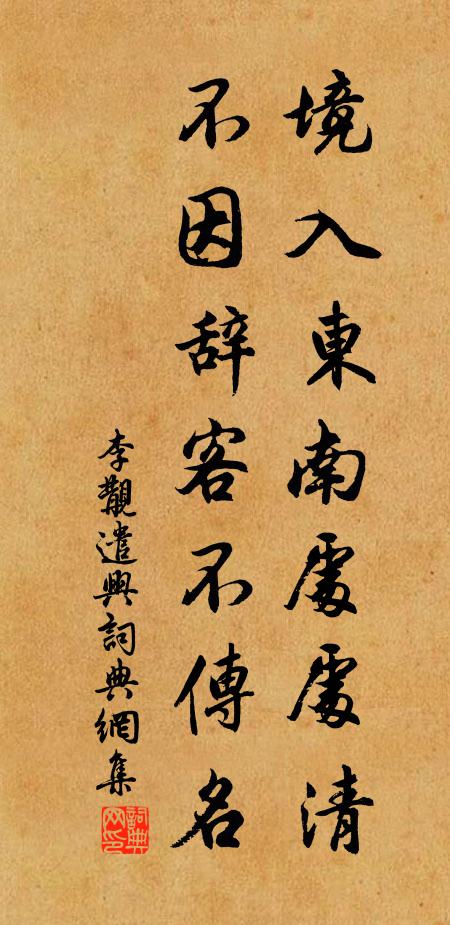 境入東南處處清
不因辞客不傳名
李觀遣興詞典網集
詞典网印